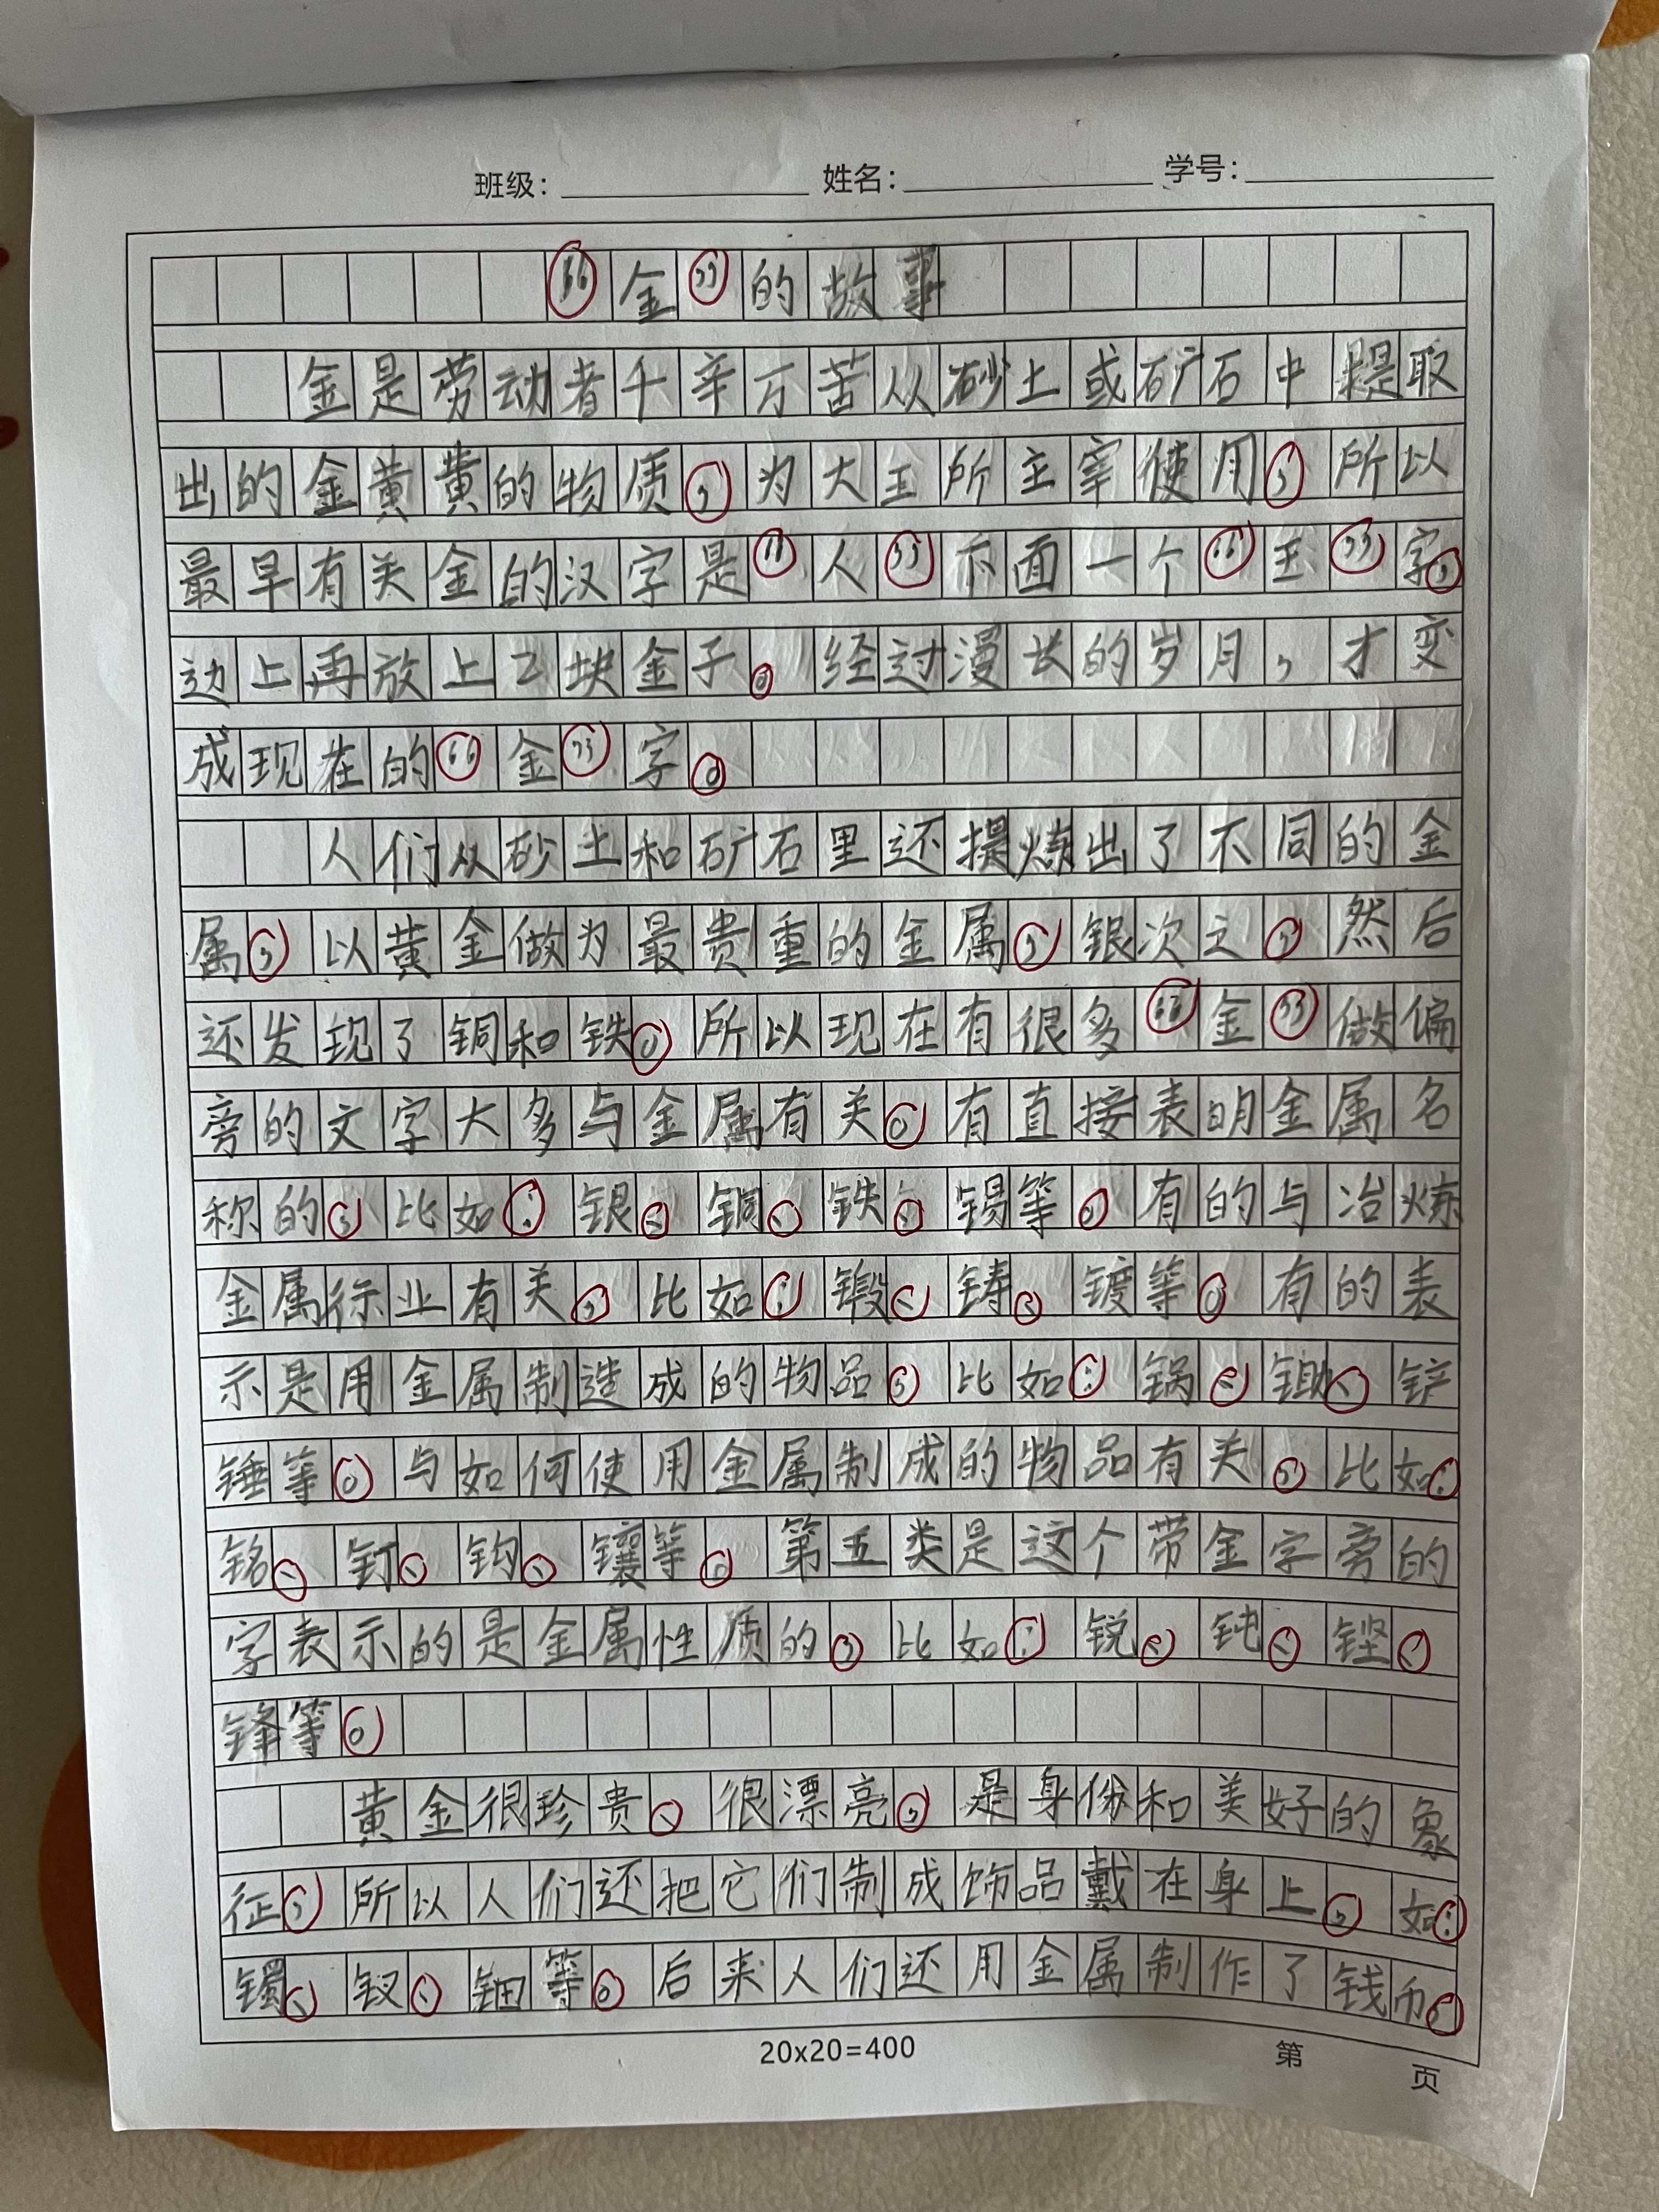 班级： 姓名： 学号：
“金”的故事
金是劳动者千辛万苦从砂土或矿石中提取
出的金黄黄的物质，为大王所主宰使用，所以
最早有关金的汉字是“人”下面一个“王”字，
边上再放上2块金子。经过漫长的岁月，才变
成现在的“金”字。
人们从砂土和矿石里还提炼出了不同的金
属，以黄金做为最贵重的金属，银次之，然后
还发现了铜和铁。所以现在有很多“金”做偏
旁的文字大多与金属有关。有直接表明金属名
称的，比如：银、铜、铁、锡等。有的与冶炼
金属行业有关，比如：锻、铸、镀等。有的表
示是用金属制造成的物品，比如：锅、锄、铲
锤等。与如何使用金属制成的物品有关，比如：
铭、钉、钩、镶等。第五类是这个带金字旁的
字表示的是金属性质的，比如：锐、钝、铿、
锋等。
黄金很珍贵、很漂亮，是身份和美好的象
征，所以人们还把它们制成饰品戴在身上，如：
镯、钗、钿等。后来人们还用金属制作了钱币，
20x20=400 第 页